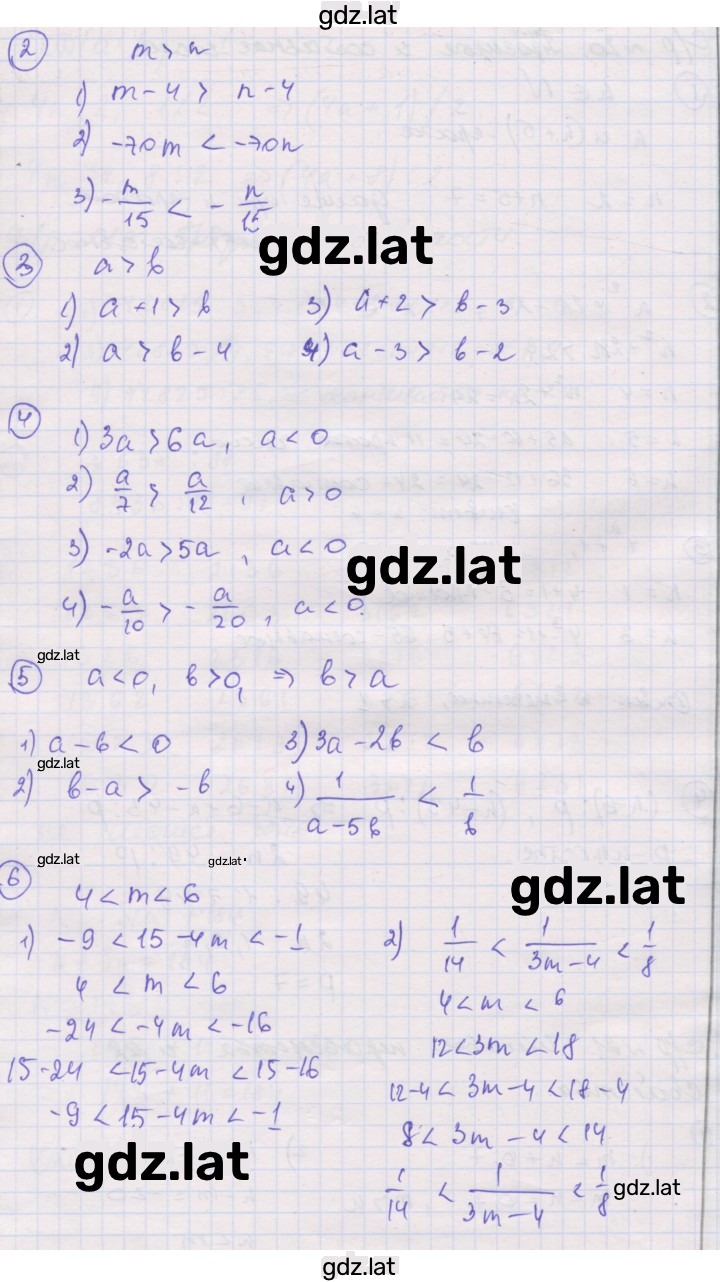 gdz.lat
2 m > n
1) m - 4 > n - 4
2) -70m < -70n
3) -m/15 < -n/15
gdz.lat
3 a > b
1) a + 1 > b 3) a + 2 > b - 3
2) a > b - 4 4) a - 3 > b - 2
4
1) 3a > 6a, a < 0
2) a/7 > a/12, a > 0
3) -2a > 5a, a < 0
gdz.lat
4) -a/10 > -a/20, a < 0.
gdz.lat
5 a < 0, b > 0, ⇒ b > a
1) a - b < 0 3) 3a - 2b < b
gdz.lat
2) b - a > -b 4) 1/(a - 5b) < 1/b
gdz.lat gdz.lat
gdz.lat
6 4 < m < 6
1) -9 < 15 - 4m < -1 2) 1/14 < 1/(3m - 4) < 1/8
4 < m < 6 4 < m < 6
-24 < -4m < -16 12 < 3m < 18
15 - 24 < 15 - 4m < 15 - 16 12 - 4 < 3m - 4 < 18 - 4
-9 < 15 - 4m < -1 8 < 3m - 4 < 14
gdz.lat
1/14 < 1/(3m - 4) < 1/8
gdz.lat
gdz.lat